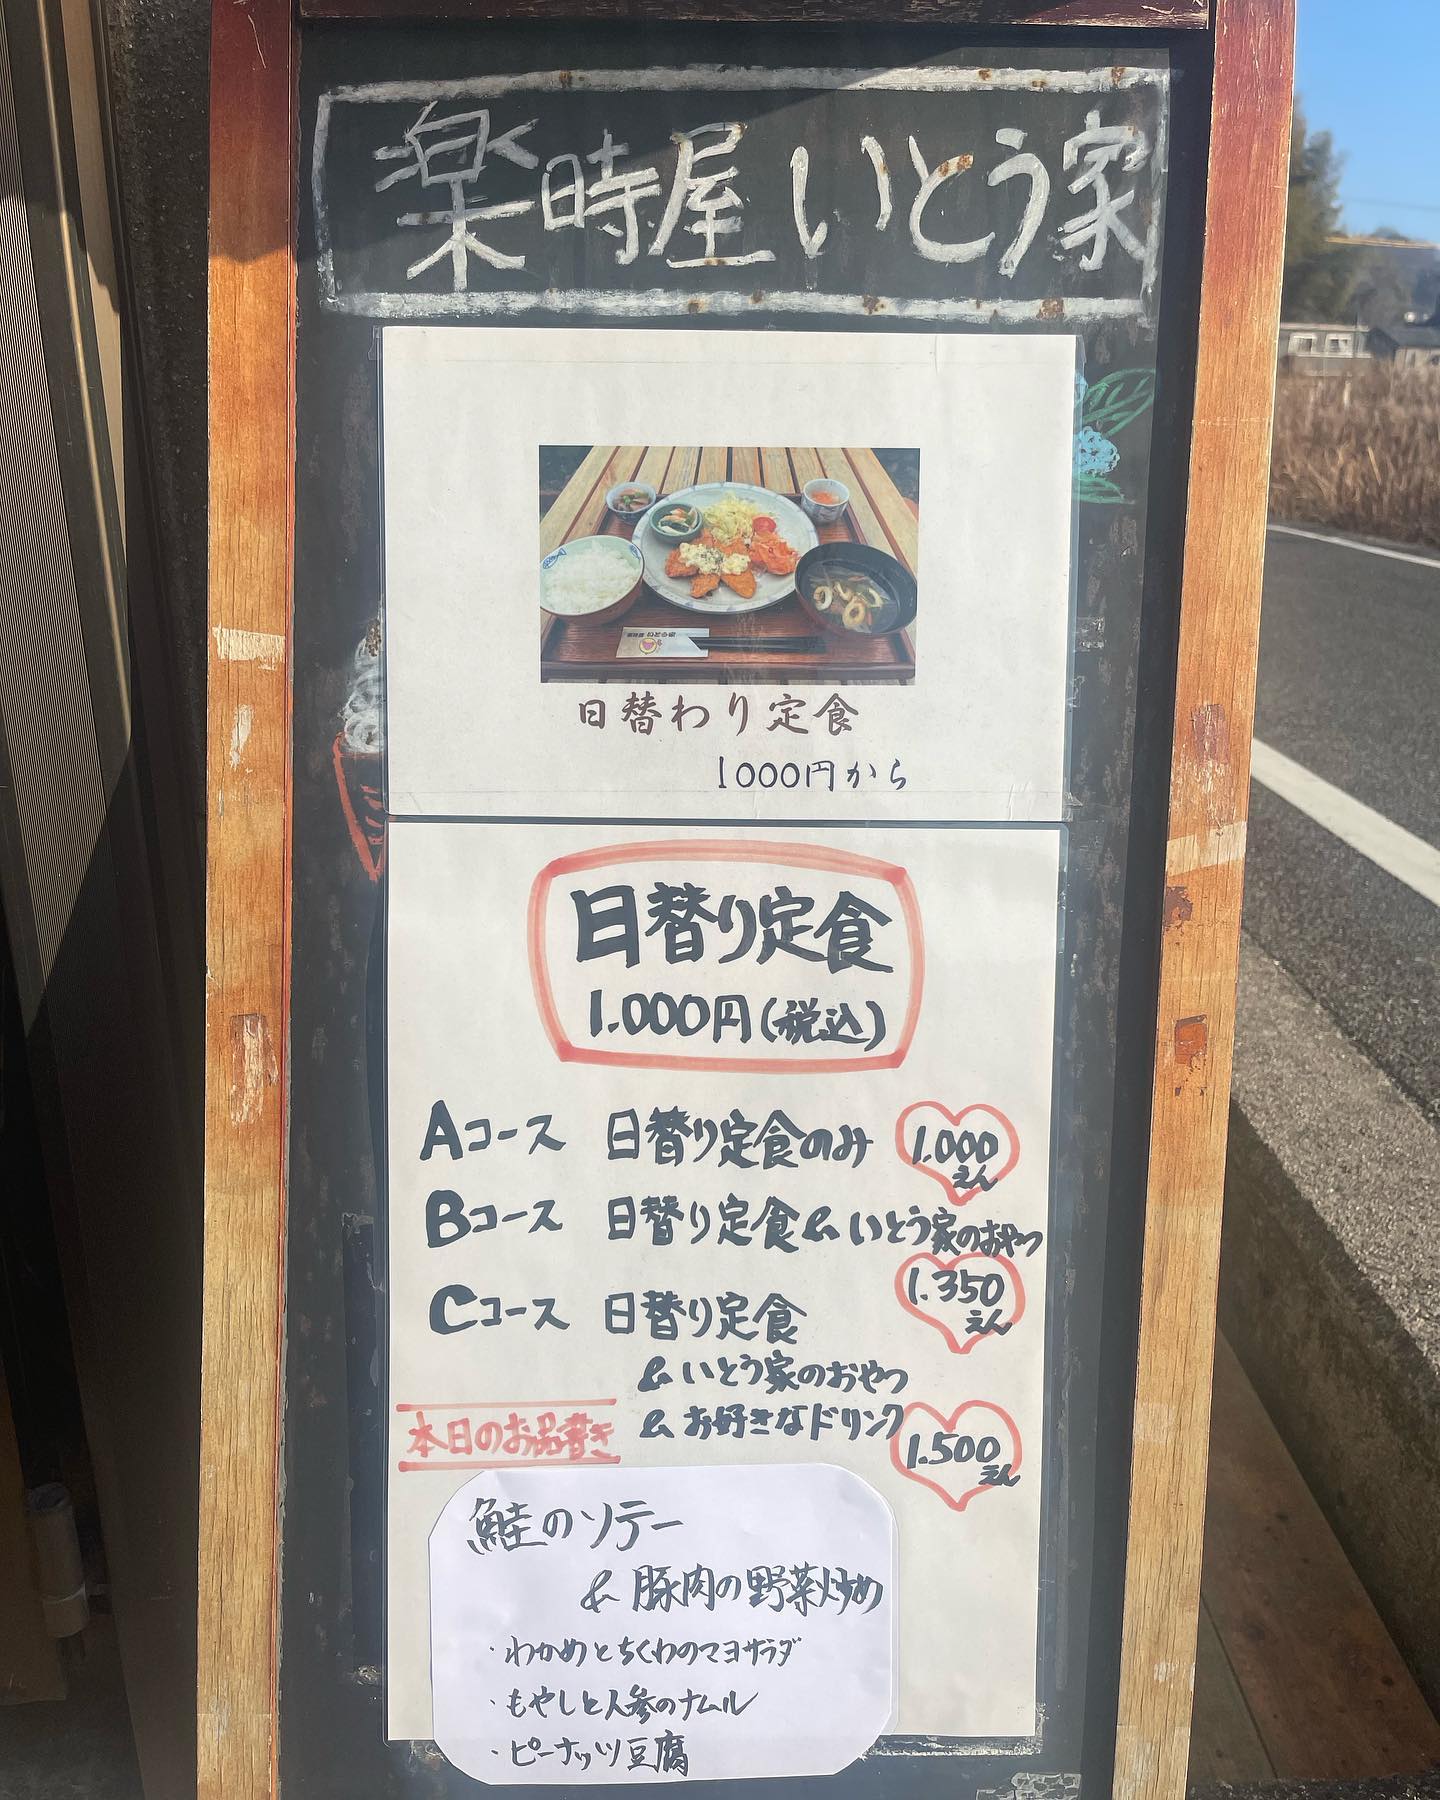 楽時屋いとう家
日替わり定食
1000円から
日替り定食
1.000円(税込)
Aコース 日替り定食のみ 1.000えん
Bコース 日替り定食&いとう家のおやつ
1.350えん
Cコース 日替り定食
&いとう家のおやつ
&お好きなドリンク 1.500えん
本日のお品書き
鮭のソテー
&豚肉の野菜炒め
・わかめとちくわのマヨサラダ
・もやしと人参のナムル
・ピーナッツ豆腐